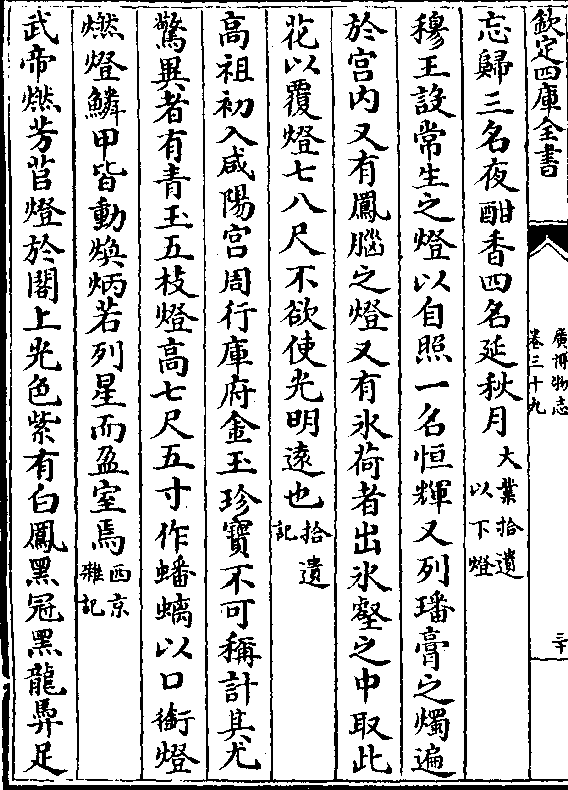 欽定四庫全書
廣博物志
卷三十九
三十
忘歸三名夜酣香四名延秋月大業拾遺
以下燈
穆王設常生之燈以自照一名恒輝又列璠膏之燭遍
於宫内又有鳳腦之燈又有氷荷者出氷壑之中取此
花以覆燈七八尺不欲使光明遠也拾遺
記
高祖初入咸陽宫周行庫府金玉珍寶不可稱計其尤
驚異者有青玉五枝燈高七尺五寸作蟠螭以口銜燈
燃燈鱗甲皆動煥炳若列星而盈室焉西京
雜記
武帝燃芳苡燈於閣上光色紫有白鳳黑冠黑龍馵足